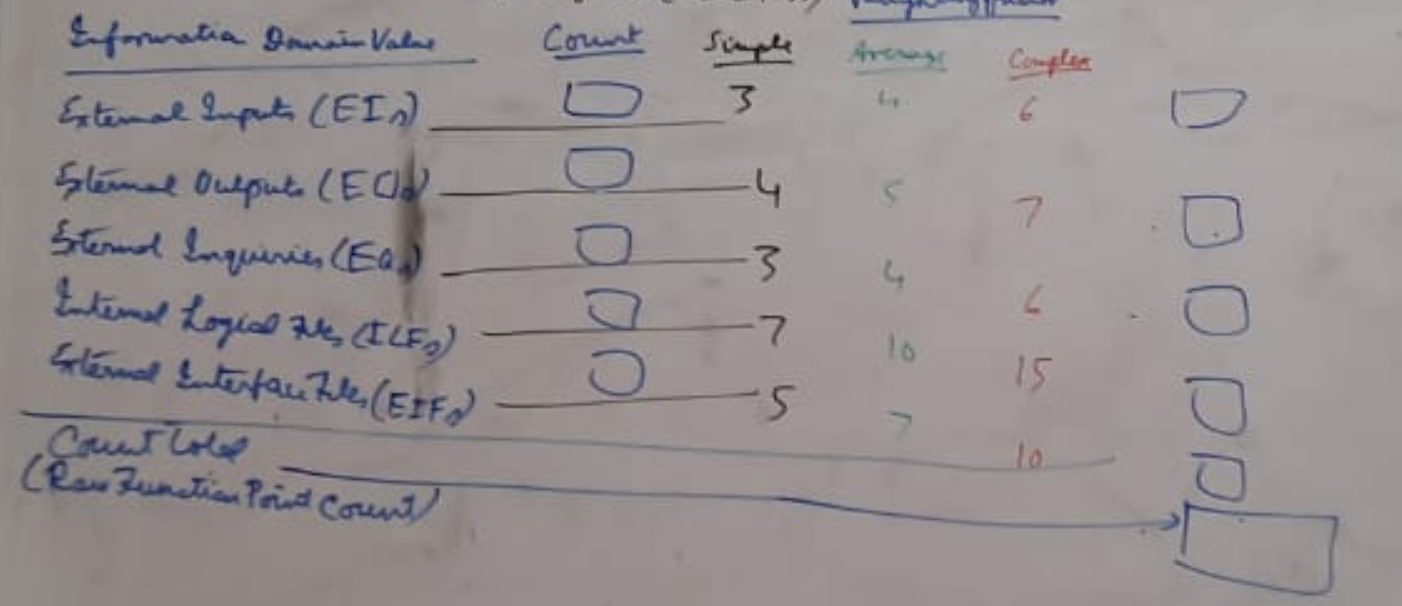 Weighting factor
Information Domain Value Count Simple Average Complex
External Inputs (EIs) 3 4 6
External Outputs (EOs) 4 5 7
External Inquiries (EQs) 3 4 6
Internal Logical Files (ILFs) 7 10 15
External Interface Files (EIFs) 5 7 10
Count Total
(Raw Function Point Count)